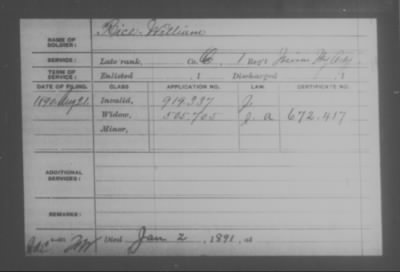 NAME OF SOLDIER: Rice William
SERVICE: Late rank, Co. C, 1 Reg't Hy Art.
TERM OF SERVICE: Enlisted , 1 Discharged , 1
DATE OF FILING. CLASS APPLICATION NO. LAW. CERTIFICATE NO.
1890 Aug 21. Invalid, 919.337 J.
Widow, 505.705 J. a 672.417
Minor,
ADDITIONAL SERVICES:
REMARKS:
Died Jan 2, 1891, at